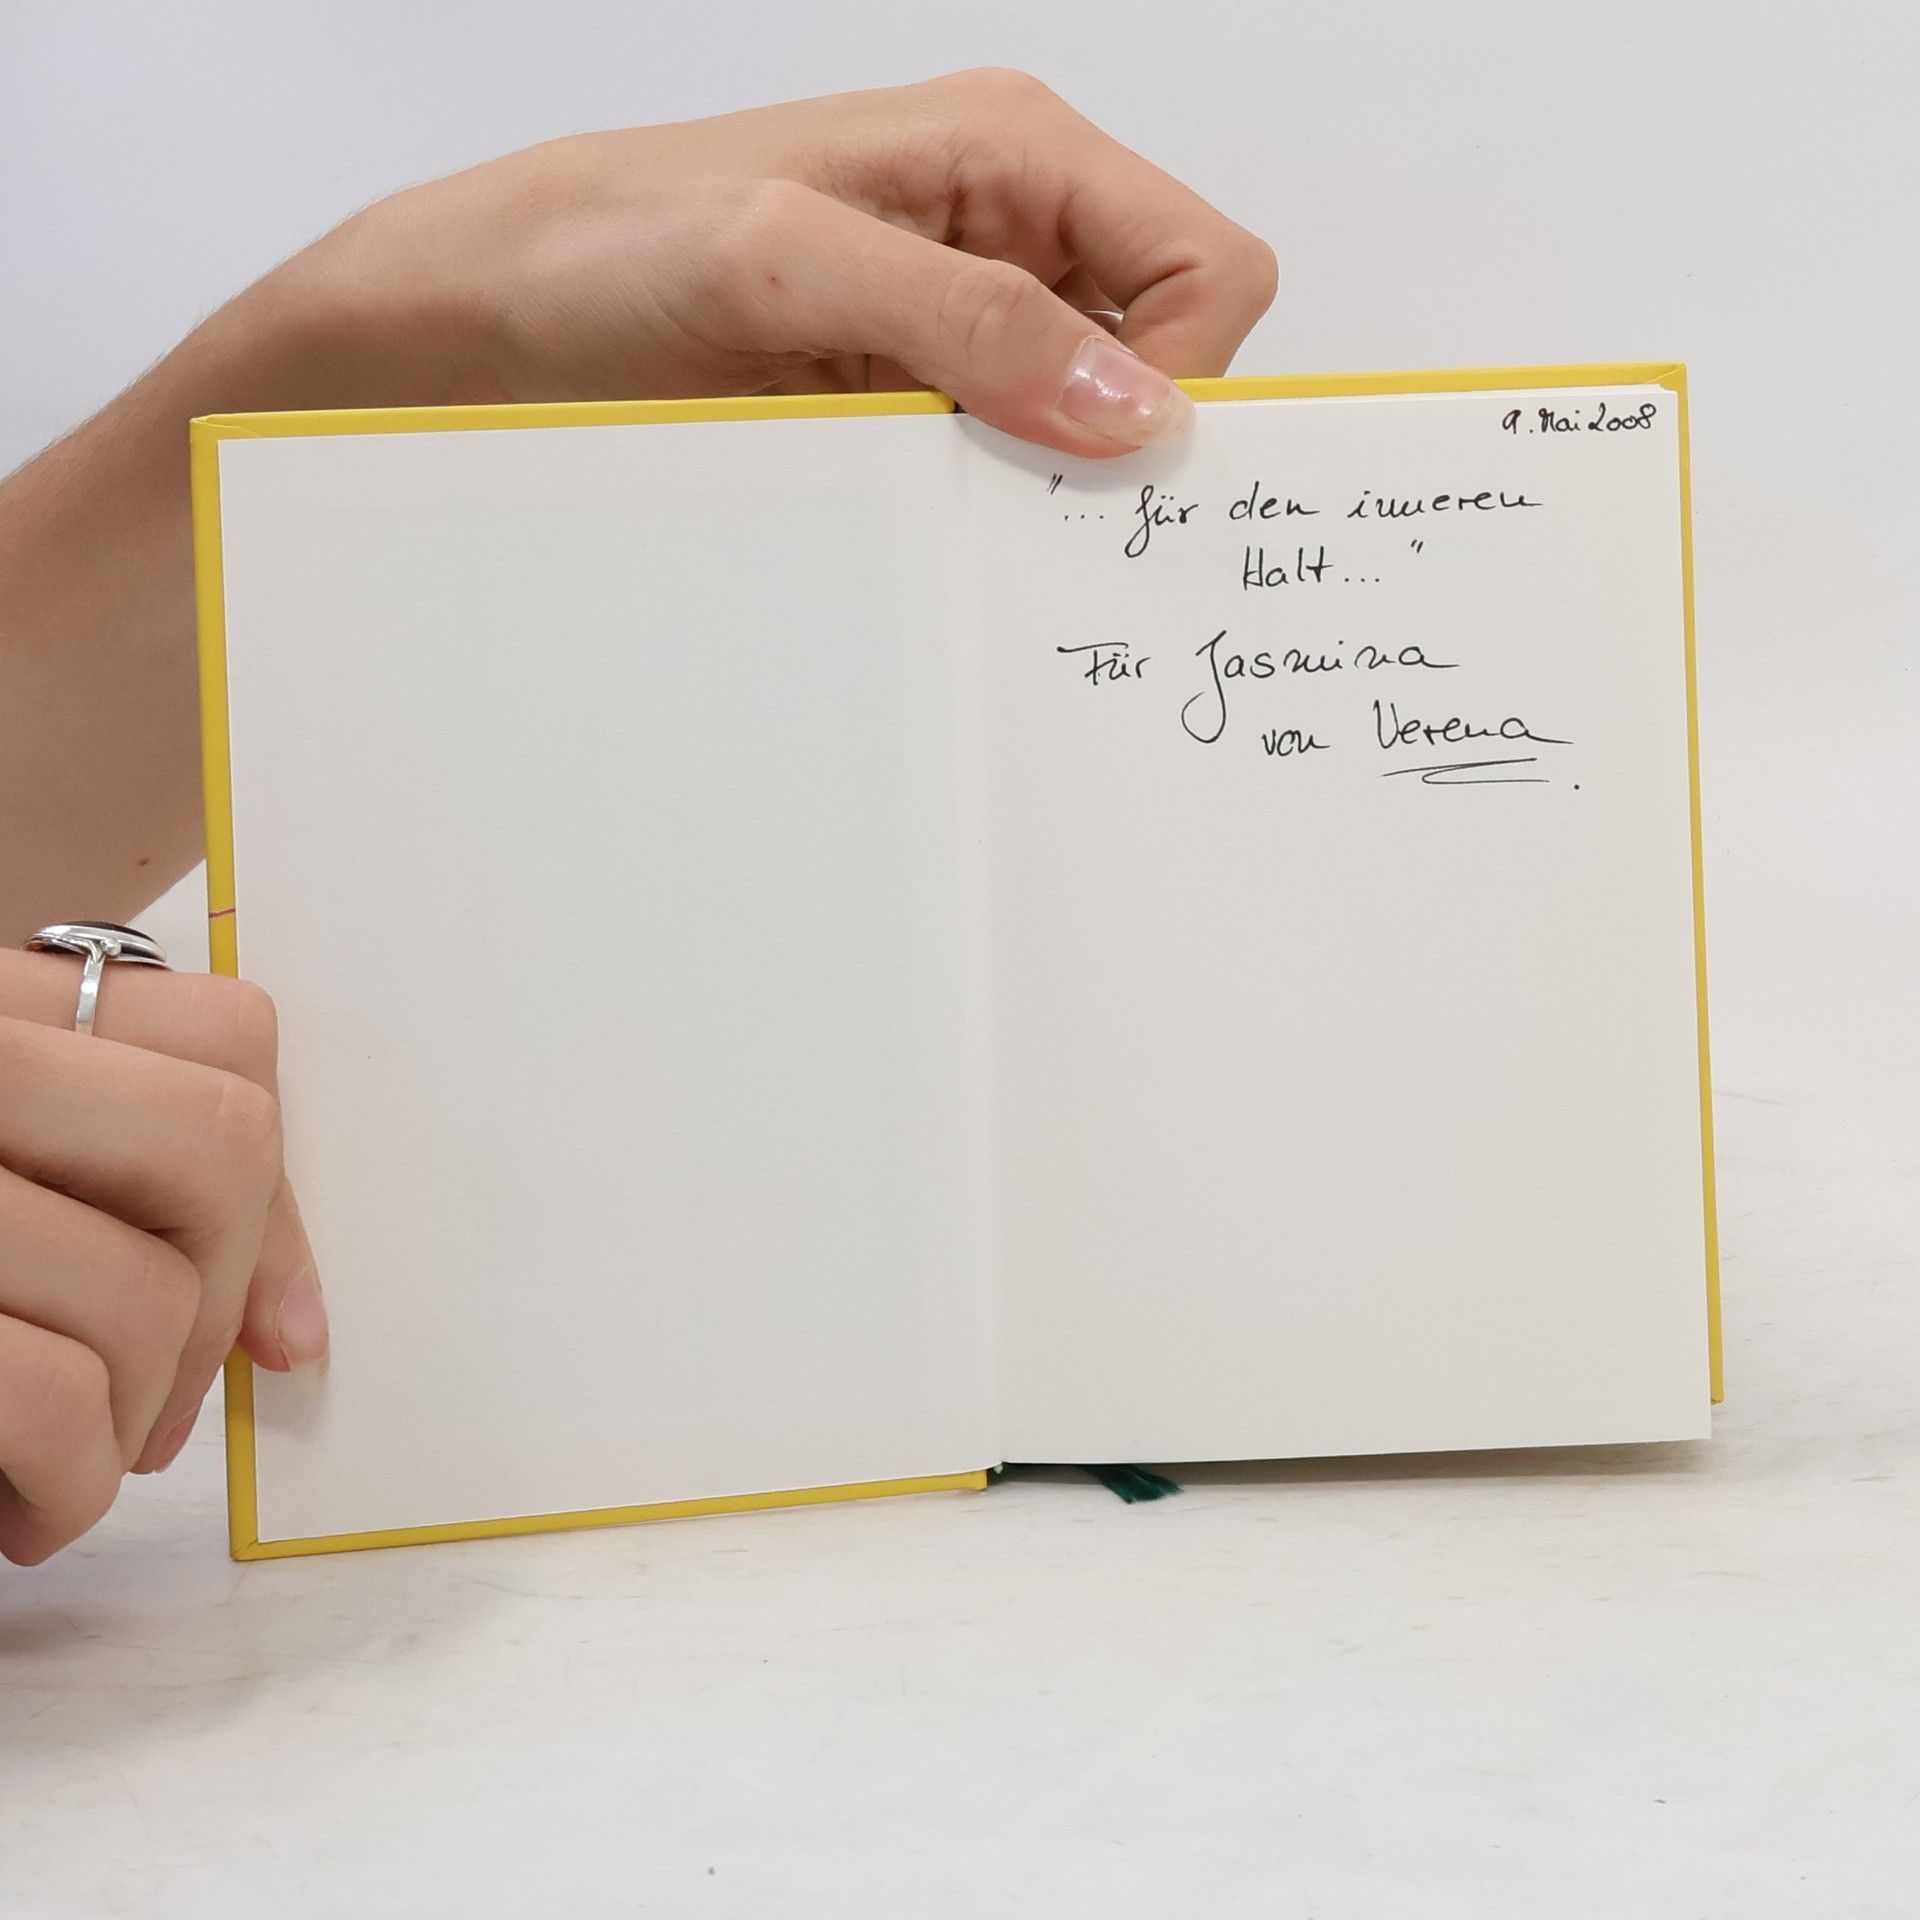 9. Mai 2008
"... für den inneren
Halt..."
Für Jasmina
von Verena.